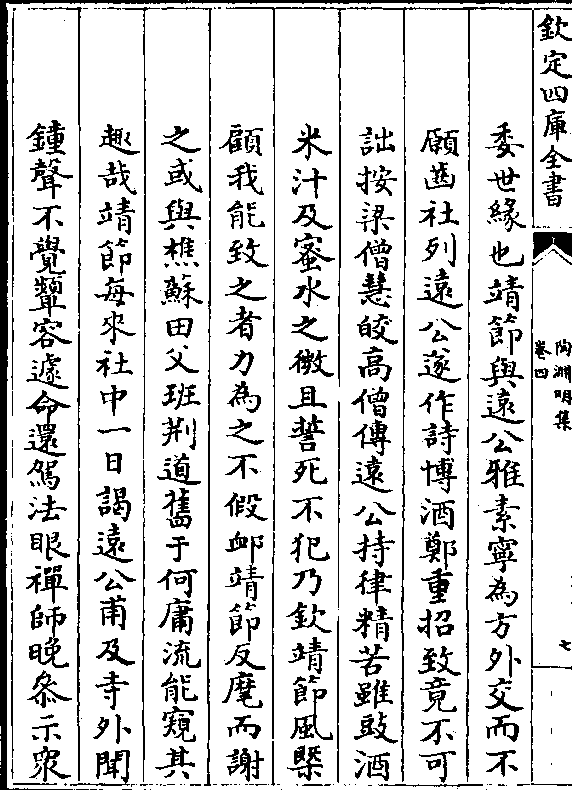 欽定四庫全書
陶淵明集
卷四
七
委世緣也靖節與遠公雅素寧為方外交而不
願齒社列遠公遂作詩博酒鄭重招致竟不可
詘按梁僧慧皎高僧傳遠公持律精苦雖豉酒
米汁及蜜水之微且誓死不犯乃欽靖節風槩
顧我能致之者力為之不假卹靖節反麾而謝
之或與樵蘇田父班荆道舊于何庸流能窺其
趣哉靖節每來社中一日謁遠公甫及寺外聞
鐘聲不覺顰容遽命還駕法眼禪師晚叅示衆